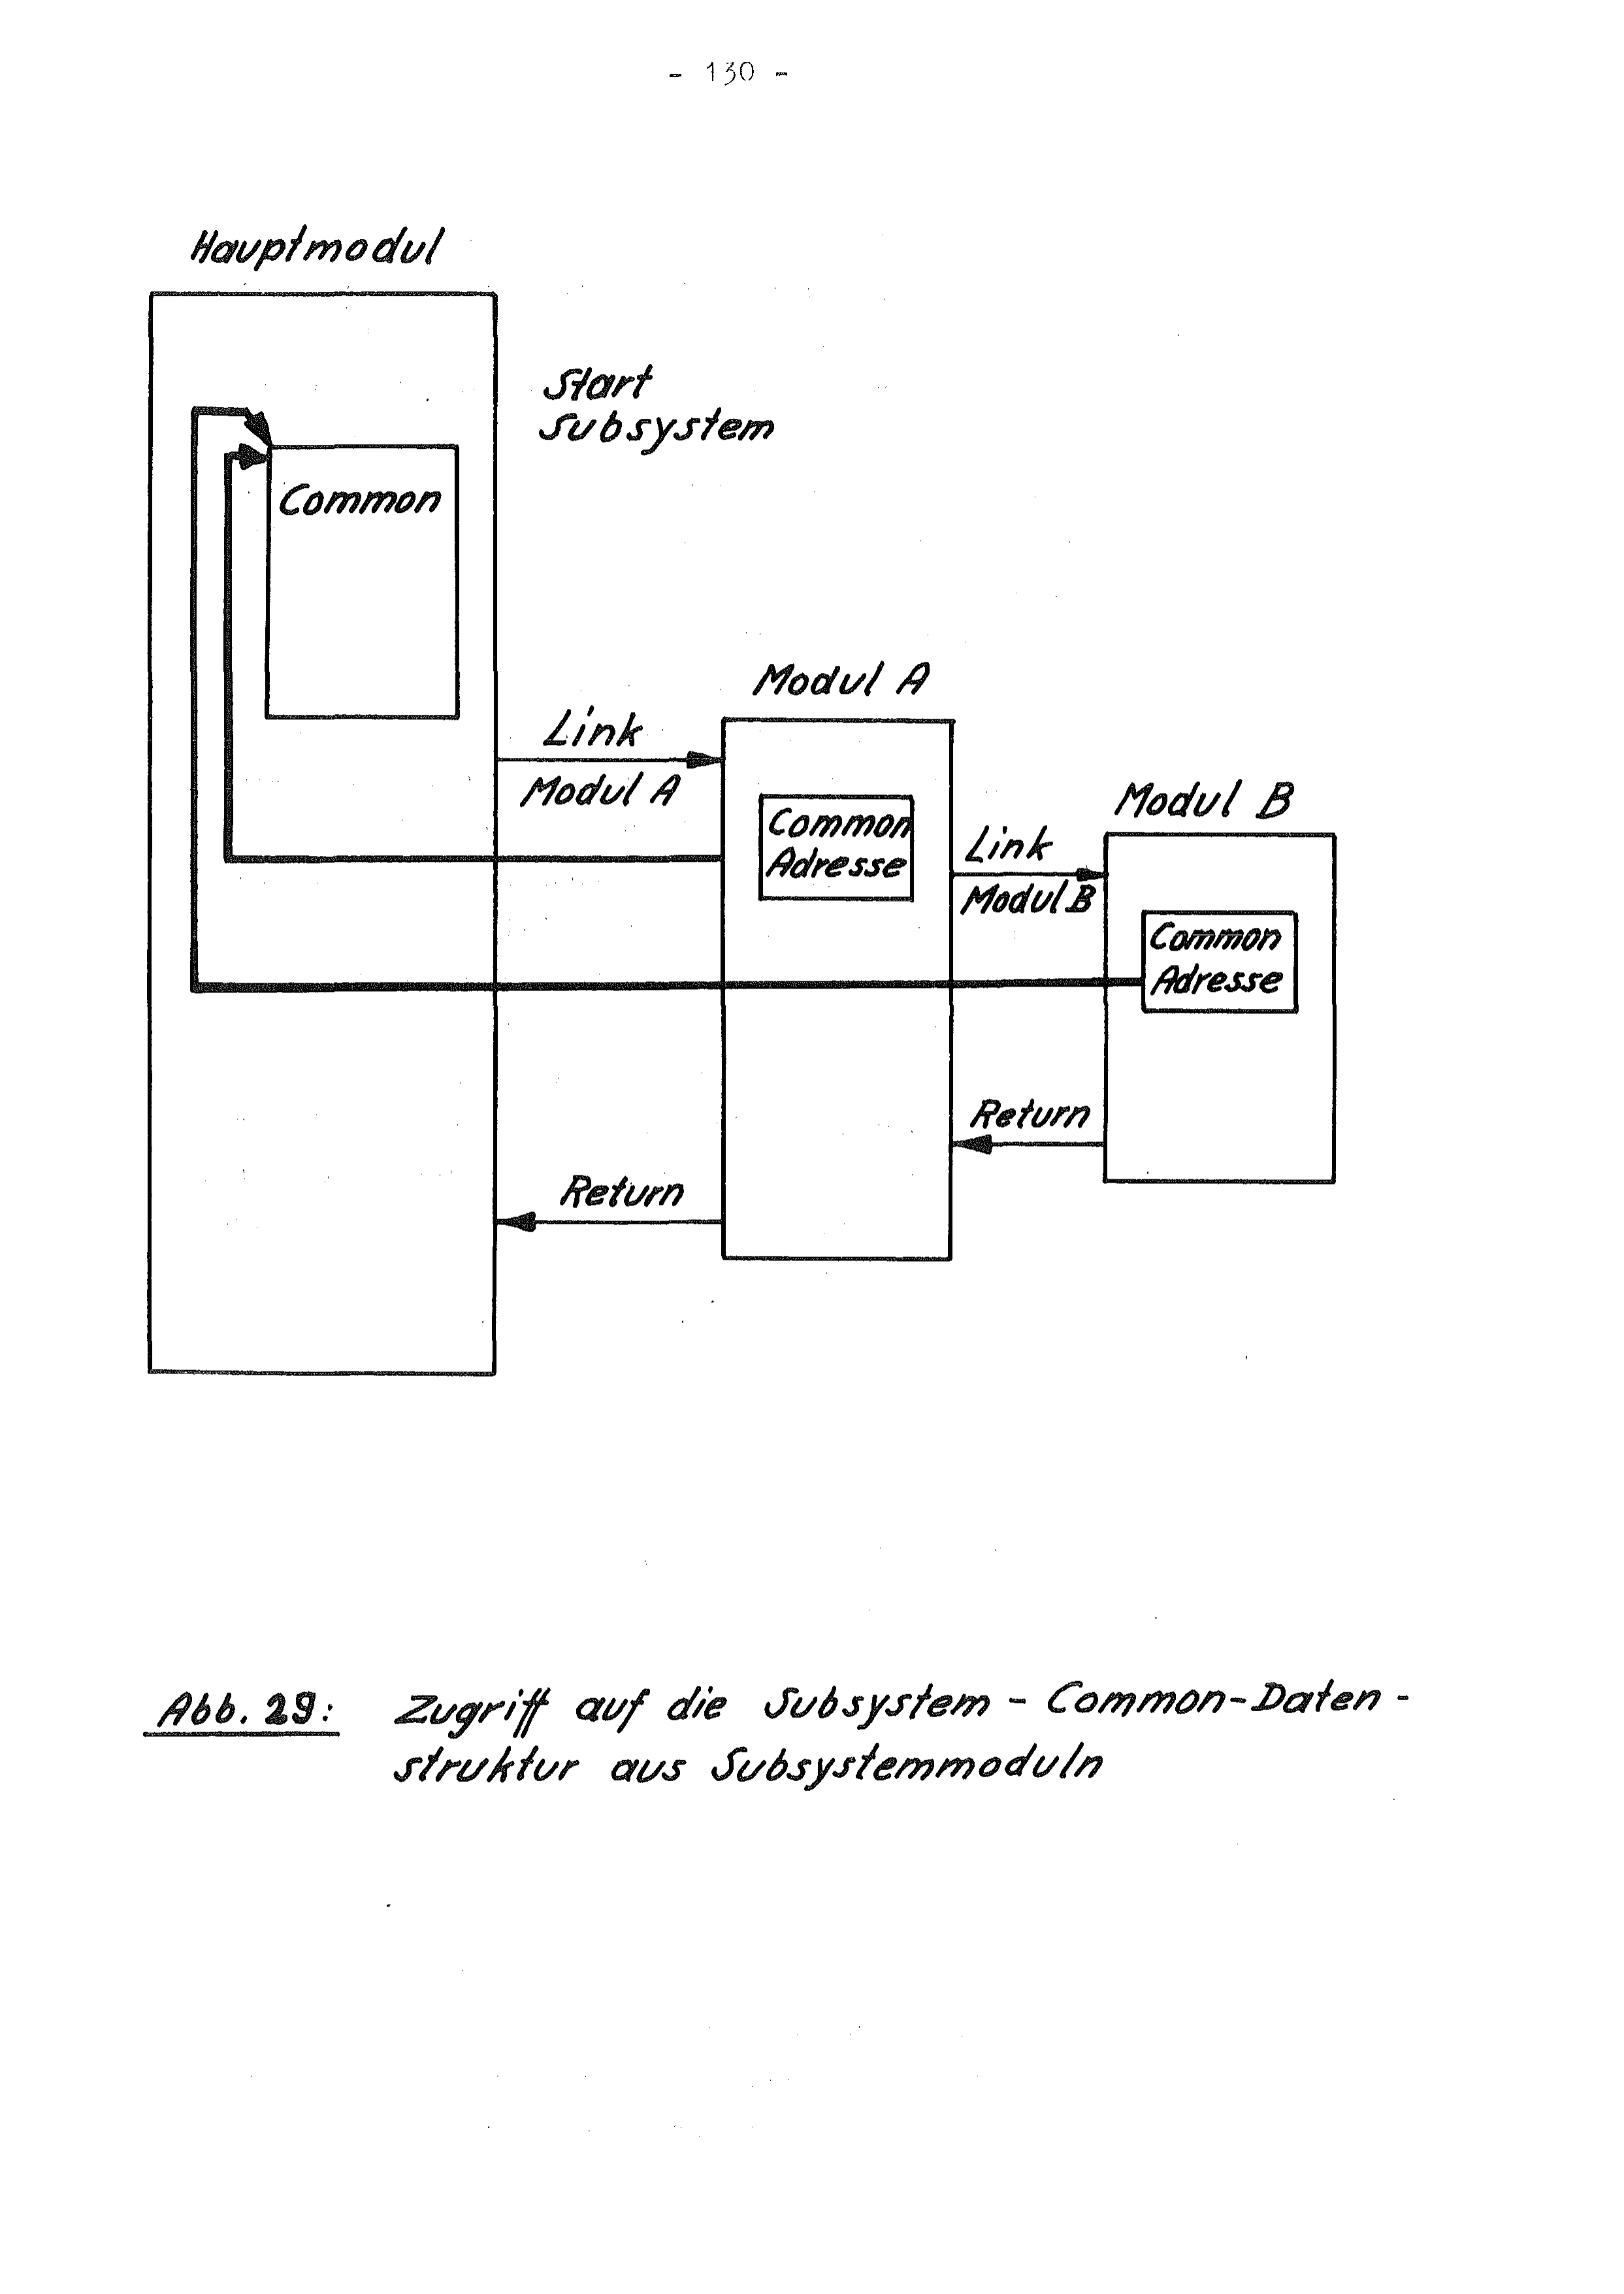 - 130 -
Hauptmodul
Start
Subsystem
Common
Modul A
Link
Modul A
Common
Adresse
Modul B
Link
Modul B
Common
Adresse
Return
Return
Abb. 29: Zugriff auf die Subsystem - Common-Daten -
struktur aus Subsystemmoduln